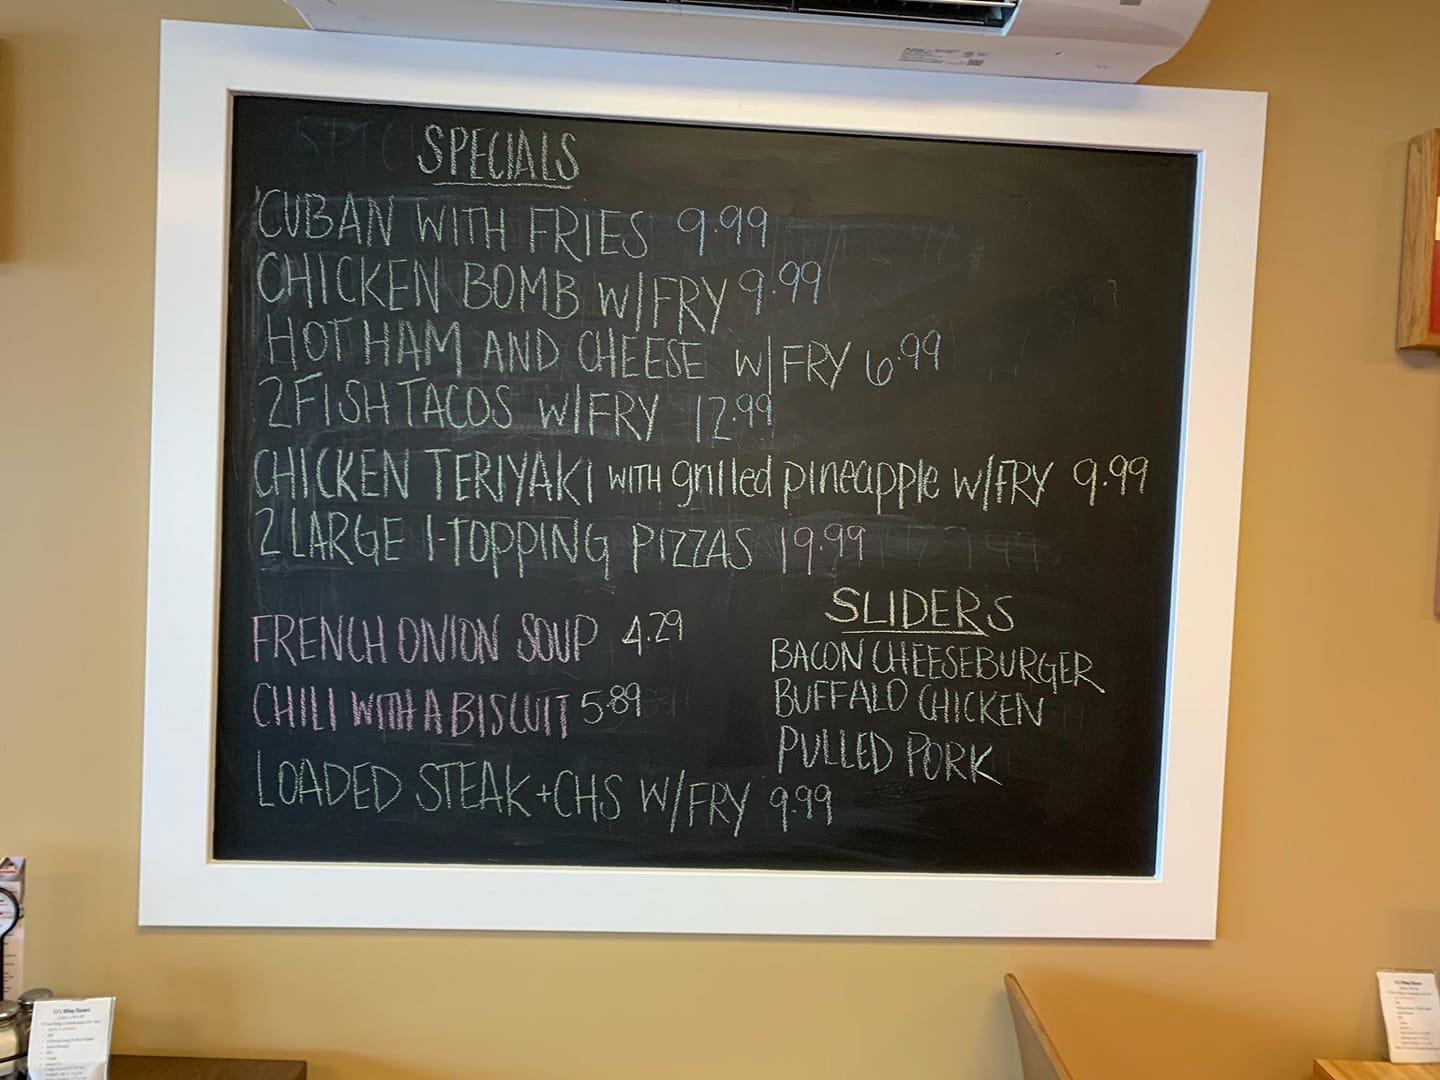 SPECIALS
CUBAN WITH FRIES 9.99
CHICKEN BOMB W/FRY 9.99
HOT HAM AND CHEESE W/FRY 6.99
2 FISH TACOS W/FRY 12.99
CHICKEN TERIYAKI WITH grilled pineapple W/FRY 9.99
2 LARGE 1-TOPPING PIZZAS 19.99
FRENCH ONION SOUP 4.29
CHILI WITH A BISCUIT 5.89
LOADED STEAK+CHS W/FRY 9.99
SLIDERS
BACON CHEESEBURGER
BUFFALO CHICKEN
PULLED PORK